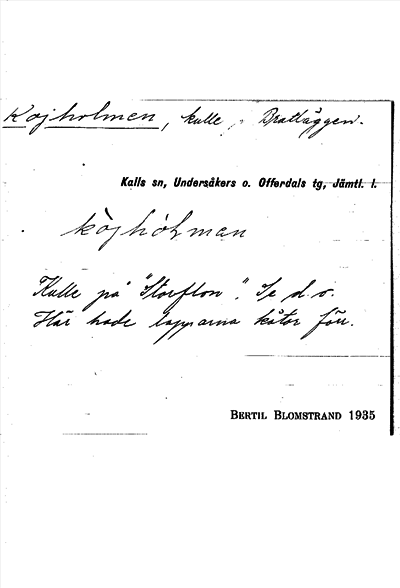 Kojholmen, kulle, Brattäggen.
Kalls sn, Undersåkers o. Offerdals tg, Jämtl. l.
kòjhòłman
Kulle på "Storflon". Se d. o.
Här hade lapparna kåtor förr.
BERTIL BLOMSTRAND 1935